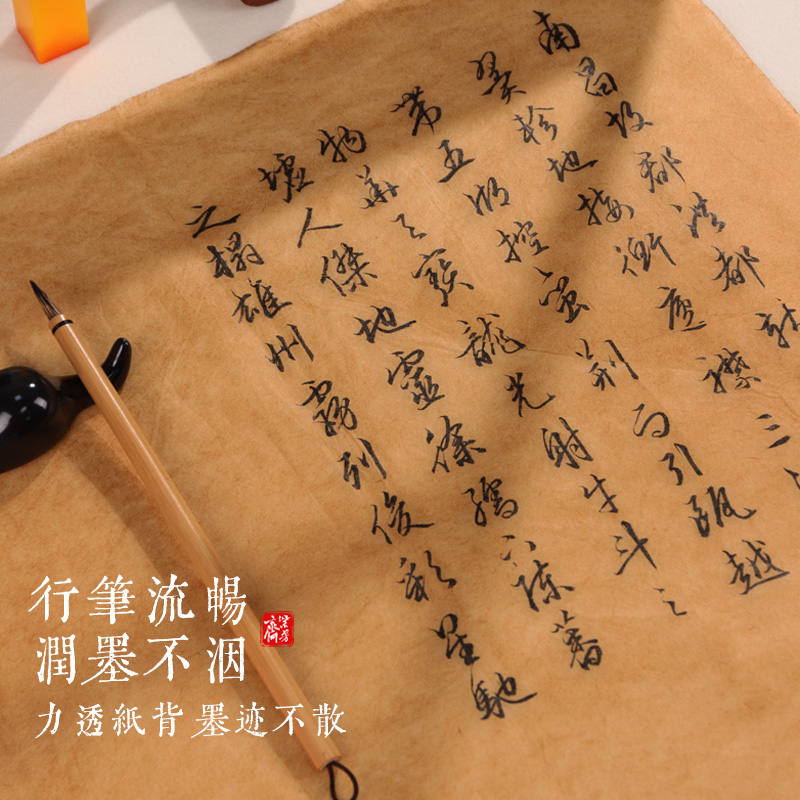 南昌故郡洪都新
翼軫地接衡廬襟三
帶五湖控蠻荊而引甌越
物華天寶龍光射牛斗之
墟人傑地靈徐孺下陳蕃
之榻雄州霧列俊彩星馳
行筆流暢
潤墨不洇
力透紙背 墨迹不散